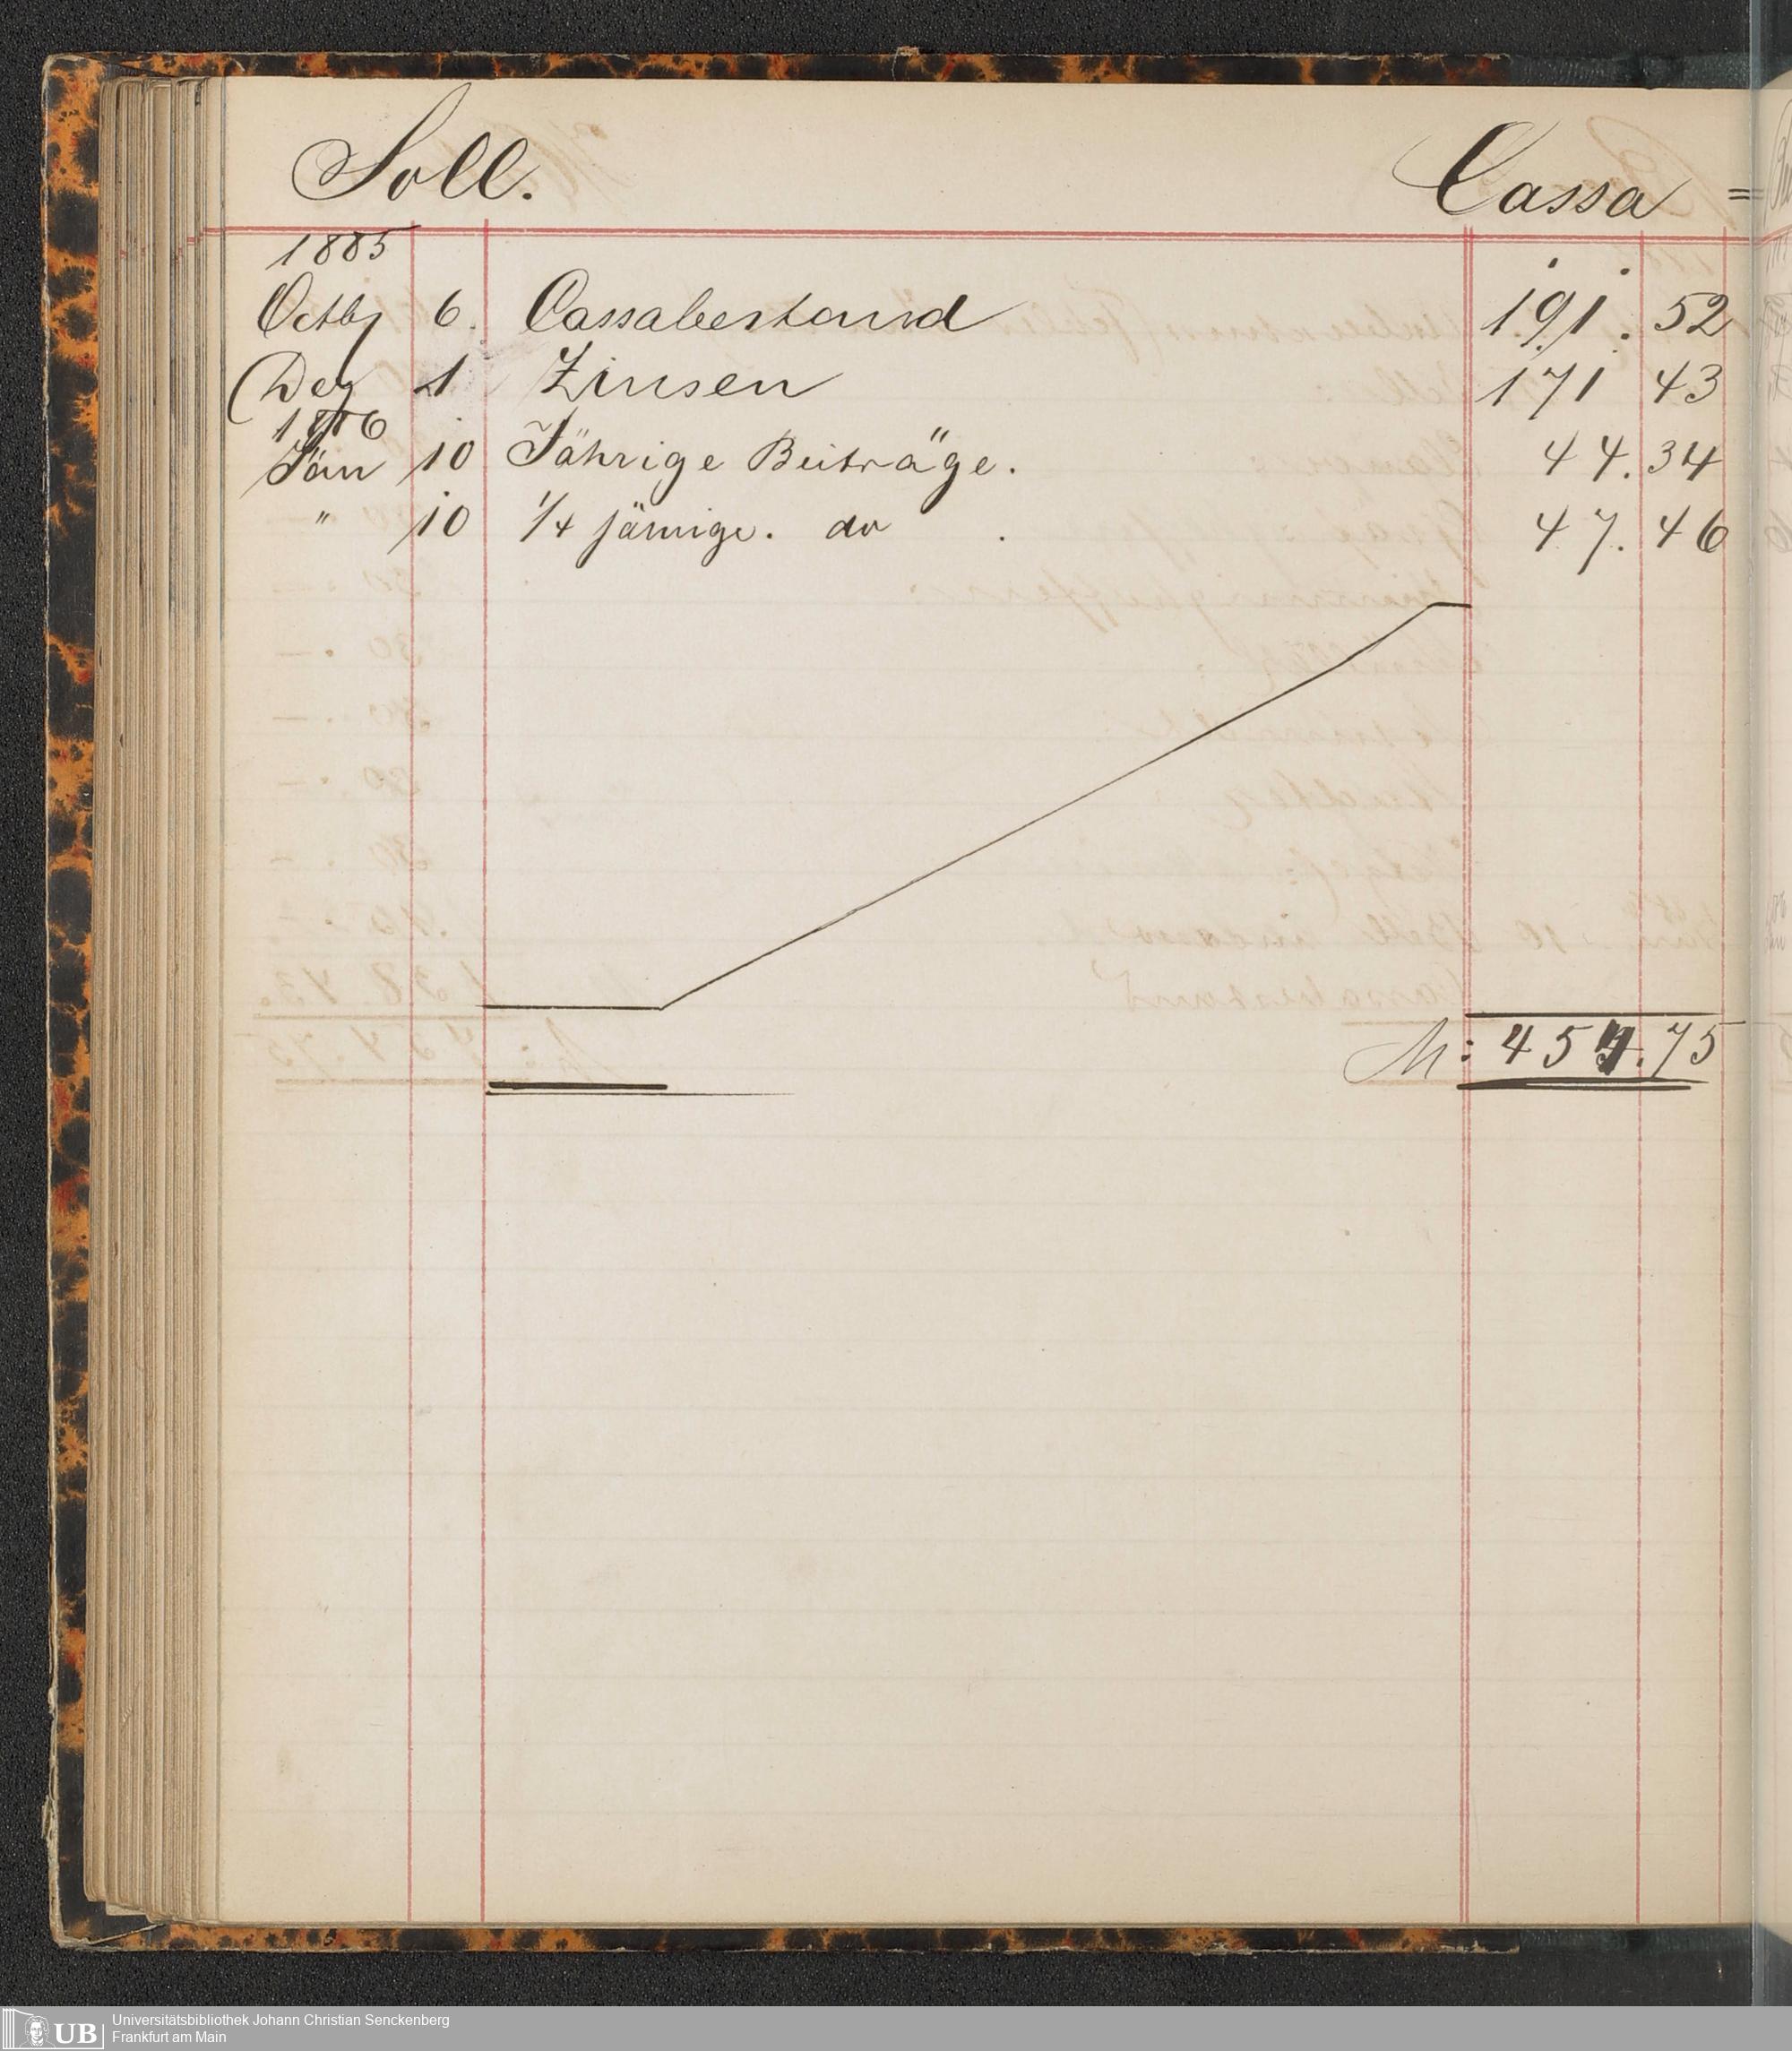 Soll. Cassa =
1885
Octbr 6. Cassabestand 191. 52
Dez 1 Zinsen 171 43
1886
Jan 10 Jährige Beiträge. 44. 34
" 10 1/4 järige. do . 47. 46
M: 454.75
Universitätsbibliothek Johann Christian Senckenberg
Frankfurt am Main
UB